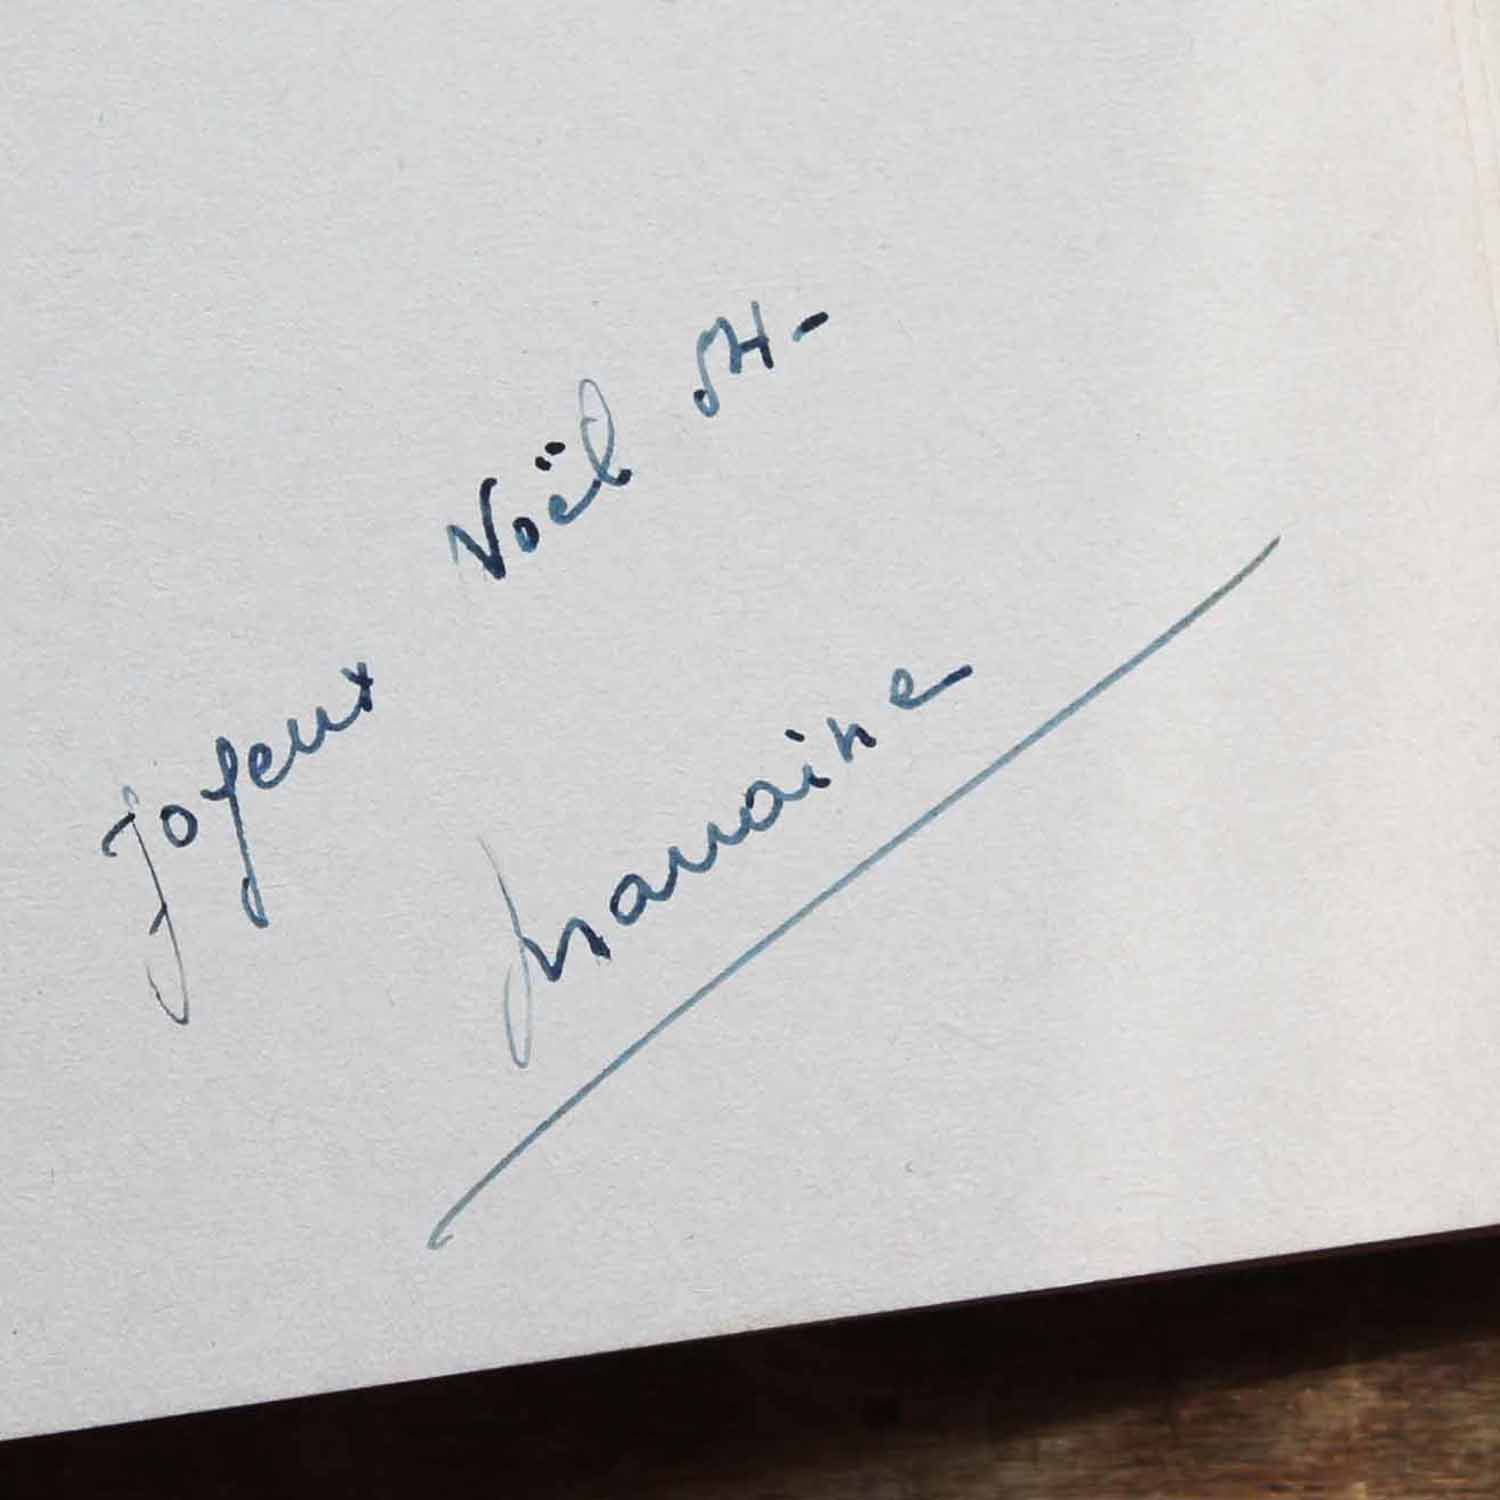 Joyeux Noël 54-
Marraine